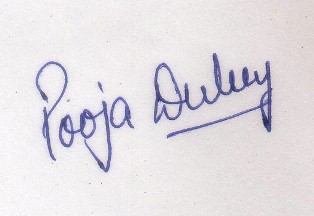 Pooja Dubey